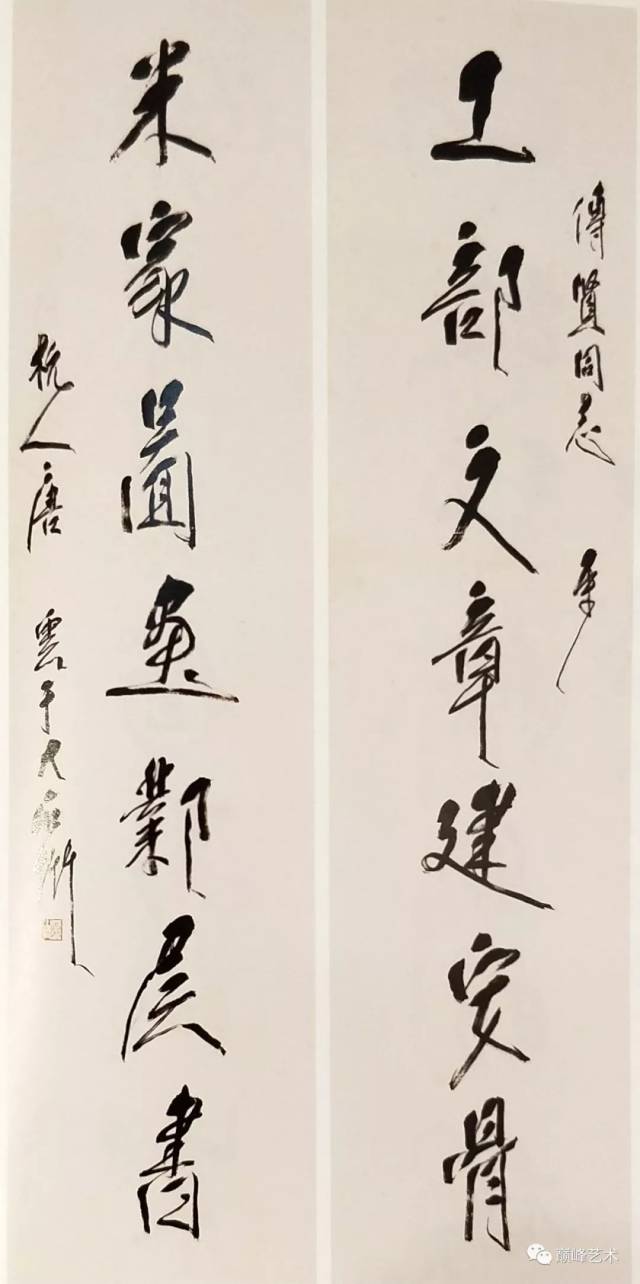 傳賢同志
工部文章建安骨
米家圖畫鄴矦書
杭人唐雲于大石齋
巅峰艺术